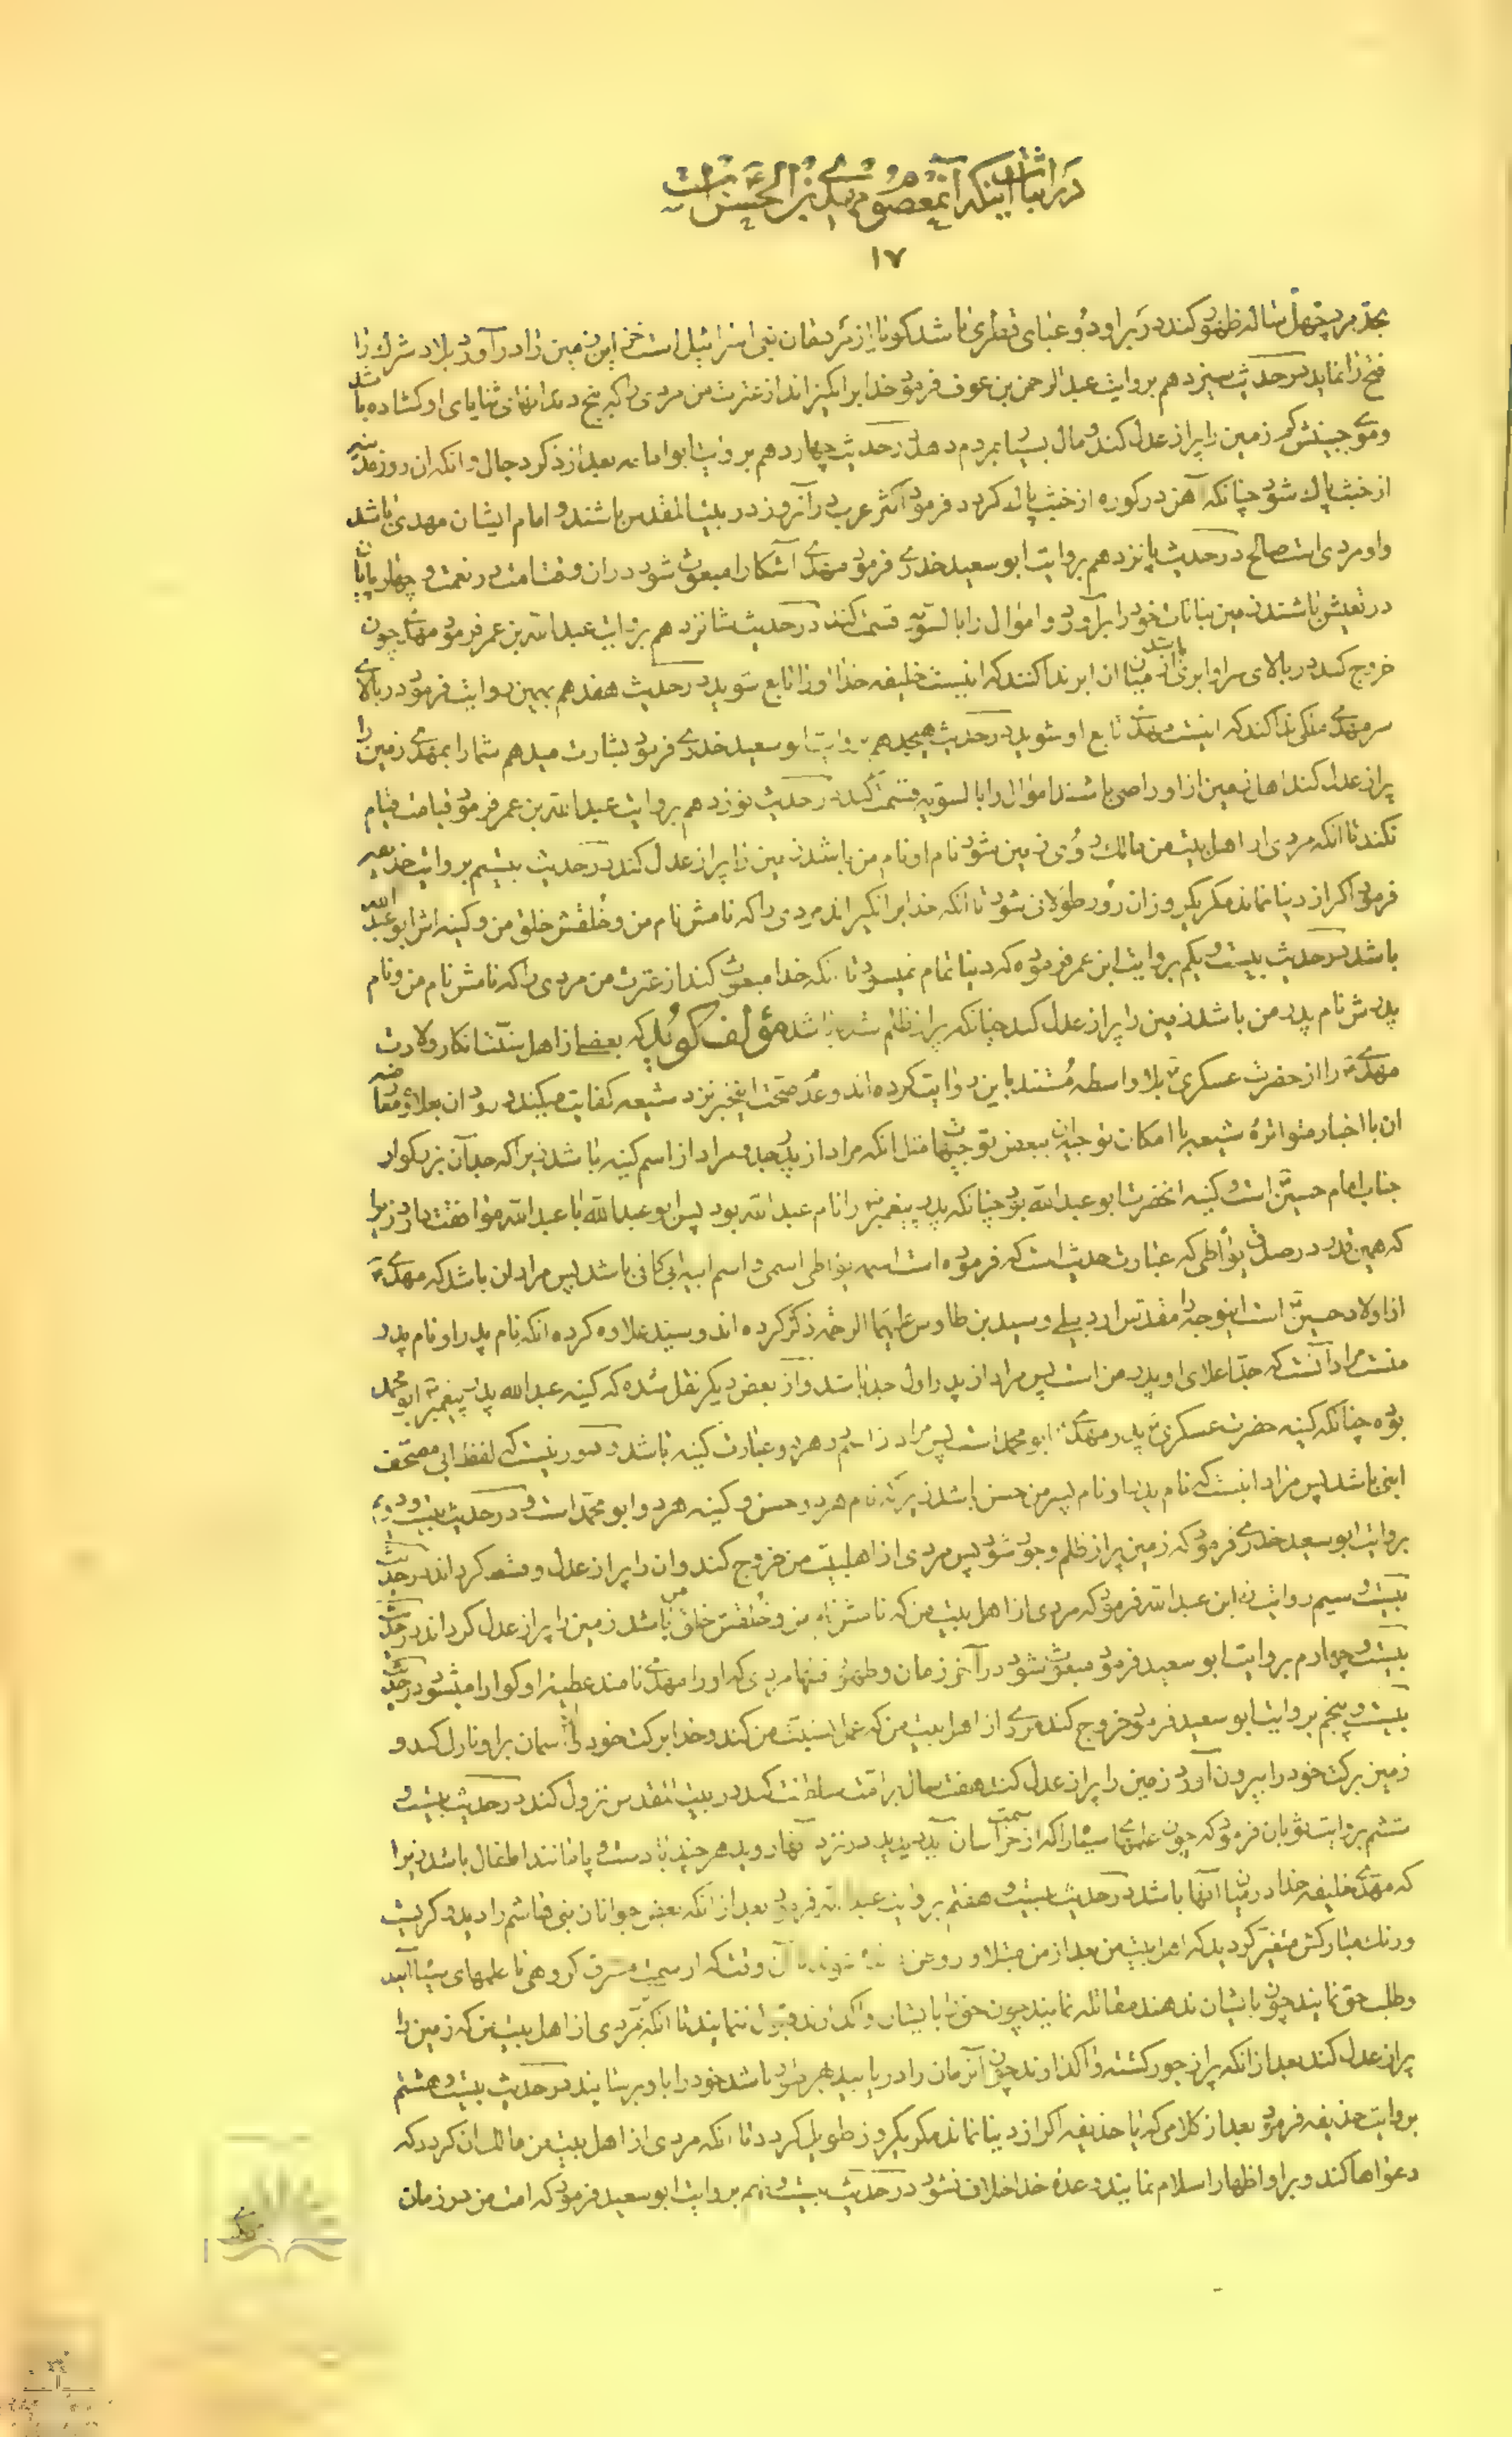 در اثبات اینکه آن معصوم مهدی بن الحسن است
۱۷
بحد مرد چهل ساله ظهور کند در بر او دو عبای قطری باشد کویا از مردمان بنی اسرائیل است این زمین را درآورد بلاد شرک را
فتح را نماید در حدیث سیزدهم بروایت عبدالرحمن بن عوف فرمود خدا برانکیزاند از عترت من مردی را که بیخ دندانهای ثنایای او کشاده باشد
و موی جبینش کم زمین را پر از عدل کند و مال بسیار بمردم دهد در حدیث چهاردهم بروایت ابوامامه بعد از ذکر دجال و انکه ان روز مدینه
از خبث پاک شود چنانکه آهن در کوره از خبث پاک کردد فرمود اکثر عرب در آنروز در بیت المقدس باشند و امام ایشان مهدی باشد
و او مردی است صالح در حدیث پانزدهم بروایت ابو سعید خدری فرمود مهدی آشکارا مبعوث شود در ان وقت امت در نعمت و چهارپایان
در تعیش باشند زمین نباتات خود را برآورد و اموال را بالسویه قسمت کند در حدیث شانزدهم بروایت عبدالله بن عمر فرمود مهدی چون
خروج کند در بالای سر او ابری باشد از میان ان ابر ندا کنند که اینست خلیفه خدا او را تابع شوید در حدیث هفدهم بهمین روایت فرمود در بالای
سر مهدی ملکی ندا کند که اینست مهدی تابع او شوید در حدیث هیجدهم بروایت ابو سعید خدری فرمود بشارت میدهم شما را بمهدی زمین را
پر از عدل کند اهل زمین از او راضی باشند اموال را بالسویه قسمت کند در حدیث نوزدهم بروایت عبدالله بن عمر فرمود قیامت قیام
نکند تا انکه مردی از اهل بیت من مالک روی زمین شود نام او نام من باشد زمین را پر از عدل کند در حدیث بیستم بروایت حذیفه
فرمود اکر از دنیا نماند مکر یکروز ان روز طولانی شود تا انکه خدا برانکیزاند مردی را که نامش نام من و خلقش خلق من و کنیه اش ابو عبدالله
باشد در حدیث بیست و یکم بروایت ابن عمر فرموده که دنیا تمام نمیشود تا انکه خدا مبعوث کند از عترت من مردی را که نامش نام من و نام
پدرش نام پدر من باشد زمین را پر از عدل کند چنانکه پر از ظلم شده باشد مؤلف کوید که بعضی از اهل سنت انکار ولادت
مهدی را از حضرت عسکری بلا واسطه مستند باین روایت کرده اند و عدم صحت اینخبر نزد شیعه کفایت میکند در رد ان بعلاوه معارضه
ان با اخبار متواتره شیعه با امکان توجیه ان ببعض توجیهات مثل انکه مراد از پدر جد و مراد از اسم کنیه باشد زیرا که جد آن بزرکوار
جناب امام حسین است و کنیه انحضرت ابو عبدالله بود چنانکه پدر پیغمبر را نام عبدالله بود پس ابو عبدالله با عبدالله موافقت دارد زیرا
که همین قدر در صدق یواطی که عبارت حدیث است که فرموده است اسمه یواطی اسمی و اسم ابیه ابی کافی باشد پس مراد ان باشد که مهدی
از اولاد حسین است اینوجه را مقدس اردبیلی و سید بن طاوس علیهما الرحمه ذکر کرده اند و سید علاوه کرده انکه نام پدر او نام پدر
منست مراد آنست که جد اعلای او پدر من است پس مراد از پدر اول جد باشد و از بعض دیکر نقل شده که کنیه عبدالله پدر پیغمبر ابو محمد
بوده چنانکه کنیه حضرت عسکری پدر مهدی ابو محمد است پس مراد از اسم در هر دو عبارت کنیه باشد و دور نیست که لفظ ابی مصحف
ابنی باشد پس مراد اینست که نام پدر او نام پسر من حسن باشد زیرا که نام هر دو حسن و کنیه هر دو ابو محمد است و در حدیث بیست و دویم
بروایت ابو سعید خدری فرمود که زمین پر از ظلم و جور شود پس مردی از اهلبیت من خروج کند و ان را پر از عدل و قسط کرداند در حدیث
بیست و سیم روایت زر ابن عبدالله فرمود که مردی از اهل بیت من که نامش نام من و خلقش خلق من باشد زمین را پر از عدل کرداند در حدیث
بیست و چهارم بروایت ابو سعید فرمود مبعوث شود در آخر زمان و ظهور فتنها مردی که او را مهدی نامند عطیه او کوارا میشود در حدیث
بیست و پنجم بروایت ابو سعید فرمود خروج کند مردی از اهل بیت من که عمل بسنت من کند و خدا برکت خود از آسمان بر او نازل کند و
زمین برکت خود را بیرون آورد زمین را پر از عدل کند هفت سال بر امت سلطنت کند در بیت المقدس نزول کند در حدیث بیست و
ششم بروایت ثوبان فرمود که چون علمهای سیاه را که از سمت خراسان آید دیدید در نزد آنها روید هر چند با دست و پا مانند اطفال باشد زیرا
که مهدی خلیفه خدا در میان آنها باشد در حدیث بیست و هفتم بروایت عبدالله فرمود بعد از آنکه بعض جوانان بنی هاشم را دید و کریست
و رنک مبارکش متغیر کردید که اهل بیت من بعد از من مبتلا و آن وقت که از سمت مشرق کروهی با علمهای سیاه آیند
و طلب حق نمایند چون بایشان ندهند مقاتله نمایند چون حق را بایشان واکذارند قبول ننمایند تا آنکه بمردی از اهل بیت من که زمین را
پر از عدل کند بعد از انکه پر از جور کشته واکذارند چون آنزمان را دریابید بهر نحو باشد خود را باو برسانید در حدیث بیست و هشتم
بروایت حذیفه فرمود بعد از کلامی که یا حذیفه اکر از دنیا نماند مکر یکروز طویل کردد تا انکه مردی از اهل بیت من مالک ان کردد که
دعواها کند و بر او اظهار اسلام نمایند وعده خدا خلاف نشود در حدیث بیست و نهم بروایت ابو سعید فرمود که امت من در زمان